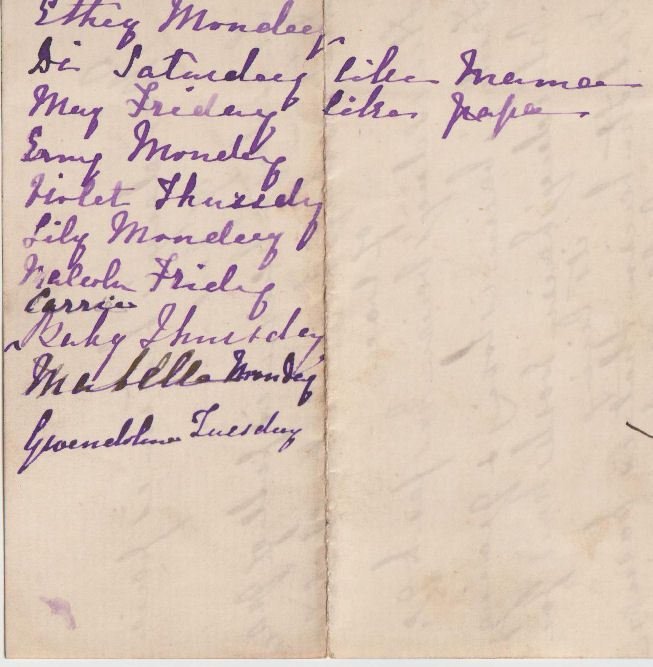 Ethey Monday
Di Saturday like Mamaa
May Friday likes papa
Erny Monday
Violet Thursday
Lily Monday
Malcolm Friday
Carrie
Ruby Thursday
Mabella Monday
Gwendoline Tuesday